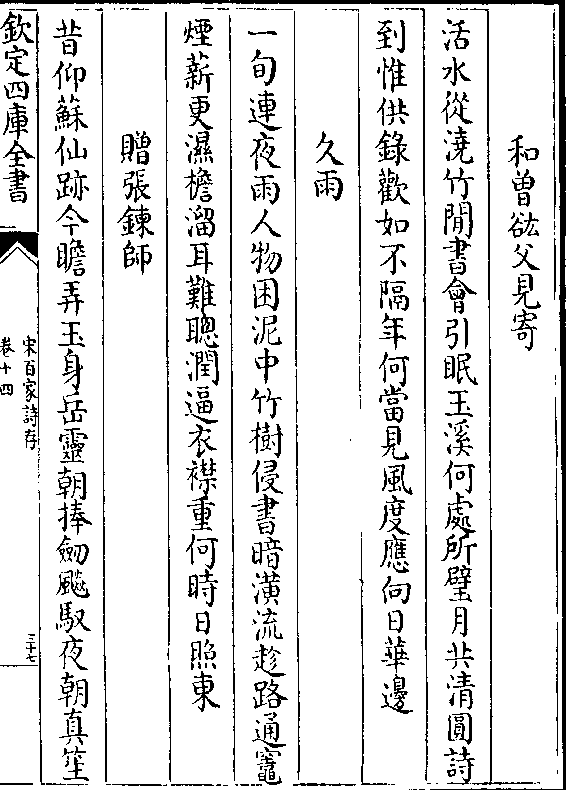 和曾紘父見寄
活水從澆竹閒書會引眠玉溪何處所璧月共清圓詩
到惟供錄歡如不隔年何當見風度應向日華邊
久雨
一旬連夜雨人物困泥中竹樹侵書暗潢流趁路通竈
煙薪更濕檐溜耳難聰潤逼衣襟重何時日照東
贈張鍊師
昔仰蘇仙跡今瞻弄玉身岳靈朝捧劒飈馭夜朝真笙
欽定四庫全書
宋百家詩存
卷十四
三十七